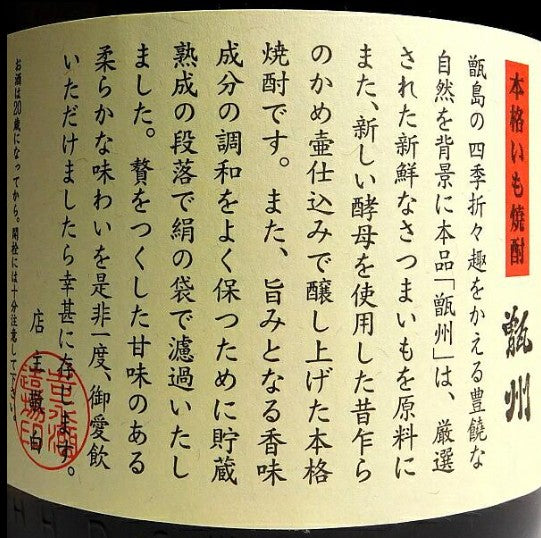 本格いも焼酎
甑州
甑島の四季折々趣をかえる豊饒な
自然を背景に本品「甑州」は、厳選
された新鮮なさつまいもを原料に
また、新しい酵母を使用した昔乍ら
のかめ壷仕込みで醸し上げた本格
焼酎です。また、旨みとなる香味
成分の調和をよく保つために貯蔵
熟成の段落で絹の袋で濾過いたし
ました。贅をつくした甘味のある
柔らかな味わいを是非一度、御愛飲
いただけましたら幸甚に存じます。
店主敬白
お酒は20歳になってから。開栓には十分注意して下さい。